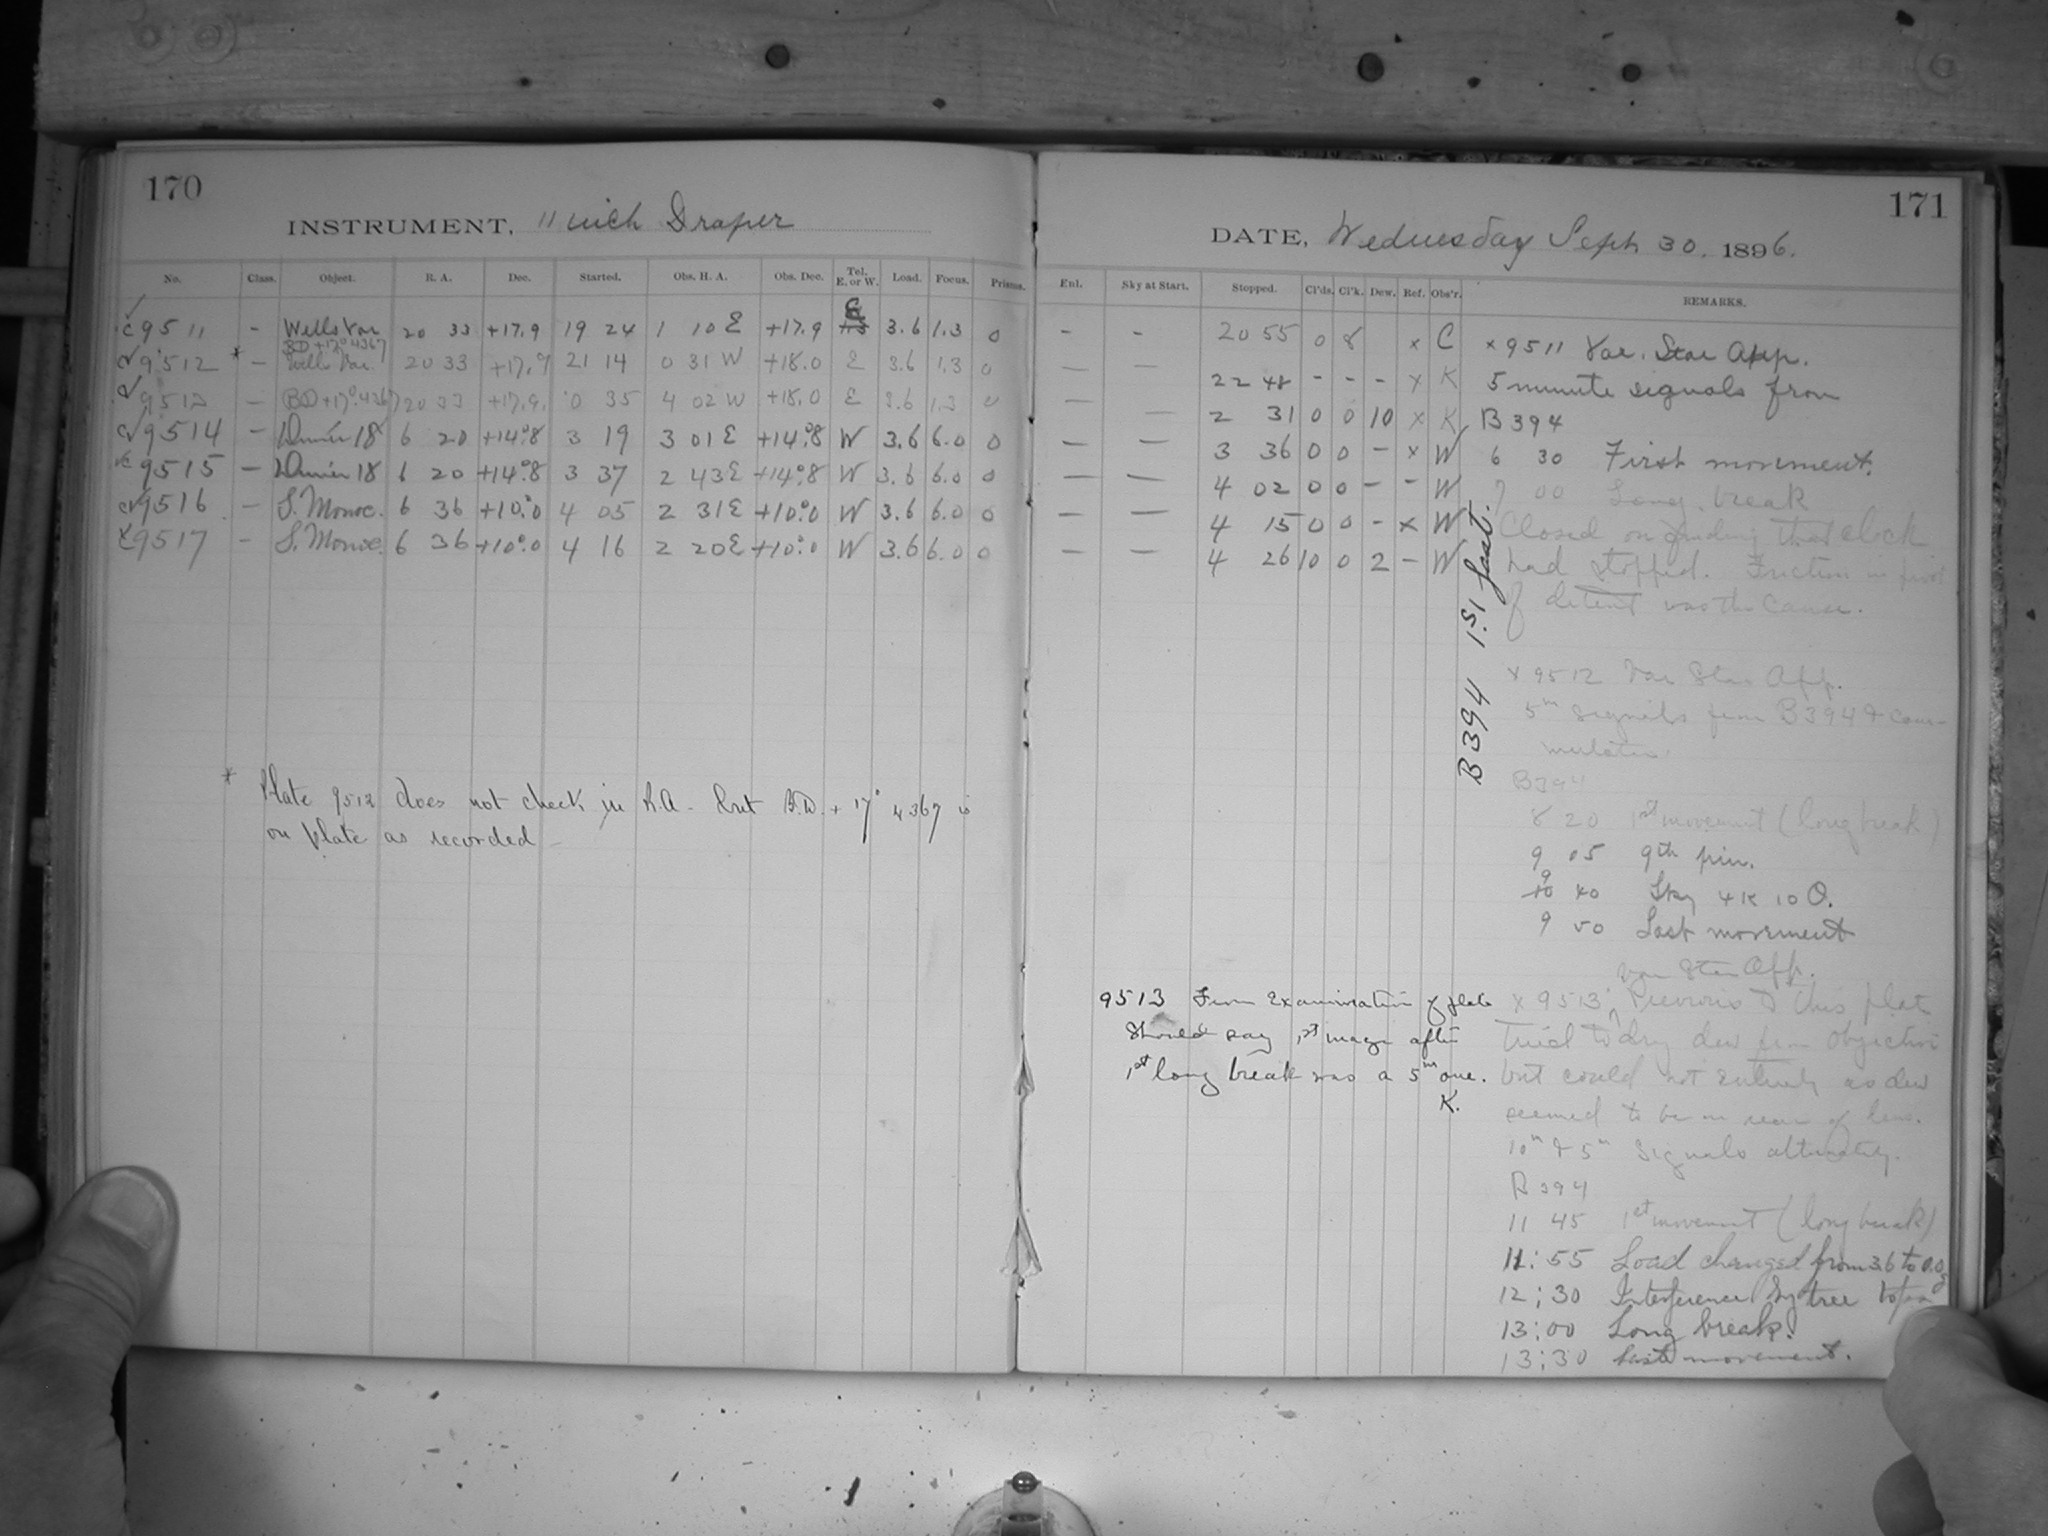 170
INSTRUMENT, 11 inch Draper
No. Class. Object. R. A. Dec. Started. Obs. H. A. Obs. Dec. Tel. E. or W. Load. Focus. Prisms.
c 9511 - Wells Var 20 33 +17.9 19 24 1 10 E +17.9 E 3.6 1.3 0
BD +17° 4367
9512 * - Wells Var. 20 33 +17.9 21 14 0 31 W +18.0 E 3.6 1.3 0
9513 - BD +17°.4367 20 33 +17.9. 0 35 4 02 W +18.0 E 3.6 1.3 0
c 9514 - Dunér 18 6 20 +14°.8 3 19 3 01 E +14°.8 W 3.6 6.0 0
c 9515 - Dunér 18 6 20 +14°.8 3 37 2 43 E +14°.8 W 3.6 6.0 0
c 9516 - S. Monoc. 6 36 +10°.0 4 05 2 31 E +10°.0 W 3.6 6.0 0
c 9517 - S. Monoc. 6 36 +10°.0 4 16 2 20 E +10°.0 W 3.6 6.0 0
* Plate 9512 does not check in R.A. but B.D. + 17° 4367 is
on plate as recorded -
171
DATE, Wednesday Sept 30. 1896.
Enl. Sky at Start. Stopped. Cl'ds. Cl'k. Dew. Ref. Obs'r. REMARKS.
- - 20 55 0 8 x C
- - 22 48 - - - x K
- - 2 31 0 0 10 x K
- - 3 36 0 0 - x W
- - 4 02 0 0 - - W
- - 4 15 0 0 - x W
- - 4 26 10 0 2 - W
B 394 1.S1 fast.
x 9511 Var. Star App.
5 minute signals from
B 394
6 30 First movement.
7 00 Long break
Closed on finding that clock
had stopped. Friction in pivot
of detent was the cause.
x 9512 Var Star App.
5m signals from B394 & com-
mutator.
B394
8 20 1st movement (long break)
9 05 9th pin.
9 40 Sky 4 K 10 O.
9 50 Last movement
Var Star App.
x 9513 Previous to this plate
tried to dry dew from objective
but could not entirely as dew
seemed to be on rear of lens.
10m & 5m signals alternately.
B 394
11 45 1st movement (long break)
11:55 Load changed from 3.6 to 0.0
12:30 Interference by tree
13:00 Long break.
13:30 Last movement.
9513 From examination of plate
should say 1st image after
1st long break was a 5m one.
K.